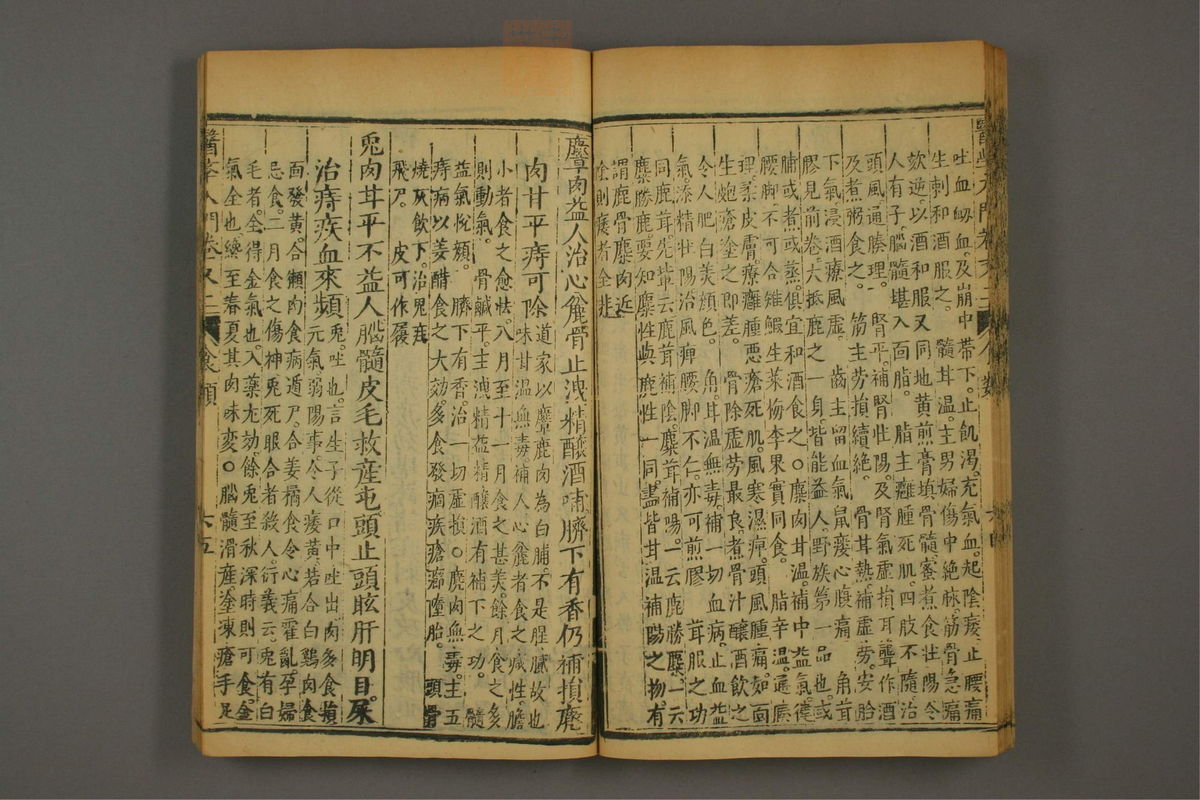 吐血衂血。及崩中帶下。止飢渴。充氣血。起陰痿。止腰痛
生刺和酒服之。髓甘溫。主男婦傷中絶脉。筋骨急痛
欬逆。以酒和服。又同地黃煎膏填骨髓。蜜煮食壯陽令
人有子。腦髓堪入面脂。脂主癰腫死肌。四肢不隨。治
頭風通腠理。腎平。補腎壯陽。及腎氣虛損耳聾作酒
及煮粥食之。筋主勞損續絶。骨甘熱。補虛勞。安胎
下氣。浸酒療風虛。齒主留血氣鼠瘻心腹痛。角茸
膠見前卷。大抵鹿之一身皆能益人。野族第一品也。或
脯或煮或蒸。俱宜和酒食之。○麋肉甘溫。補中益氣。治
腰脚。不可合雉鰕生菜梅李果實同食。脂辛溫。通腠
理柔皮膚。療癰腫惡瘡死肌。風寒濕痹。頭風腫痛。如面
生皰瘡塗之即差。骨除虛勞最良。煮骨汁釀酒飲之
令人肥白美顏色。角甘溫無毒。補一切血病。止血益
氣添精壯陽治風痹腰脚不仁。亦可煎膠。茸服之功
同鹿茸。先輩云鹿茸補陰。麋茸補陽。一云鹿勝麋。一云
麋勝鹿。要知麋性與鹿性一同。盡皆甘溫補陽之物。有
謂鹿骨麋肉近
陰則痿者全非
麞肉益人治心麄骨止洩精釀酒啉臍下有香仍補損麂
肉甘平痔可除道家以麞鹿肉為白脯。不是腥膩故也
味甘溫無毒補人。心麄者食之減性。膽
小者食之愈怯。八月至十一月食之甚美。餘月食之多
則動氣。骨鹹平。主洩精益精釀酒有補下之功。髓
益氣悅顏。臍下有香。治一切虛損。○麂肉無毒。主五
痔病。以姜醋食之大効。多食發痼疾瘡癤墮胎。頭骨
燒灰飲下。治鬼疰
飛尸。皮可作履
兎肉甘平不益人腦髓皮毛救産屯頭止頭眩肝明目。屎
治痔疾血來頻兎。吐也。言生子從口中吐出。肉多食損
元氣弱陽事。令人痿黃。若合白鷄肉食
面發黃。合獺肉食病遁尸。合姜橘食令心痛霍亂。孕婦
忌食。二月食之傷神。兎死眼合者殺人。衍義云。兎有白
毛者。全得金氣也。入藥尤効。餘兎至秋深時則可食。金
氣全也。纔至春夏其肉味変。○腦髓滑産。塗凍瘡手足
醫學入門卷又二
食類
六五